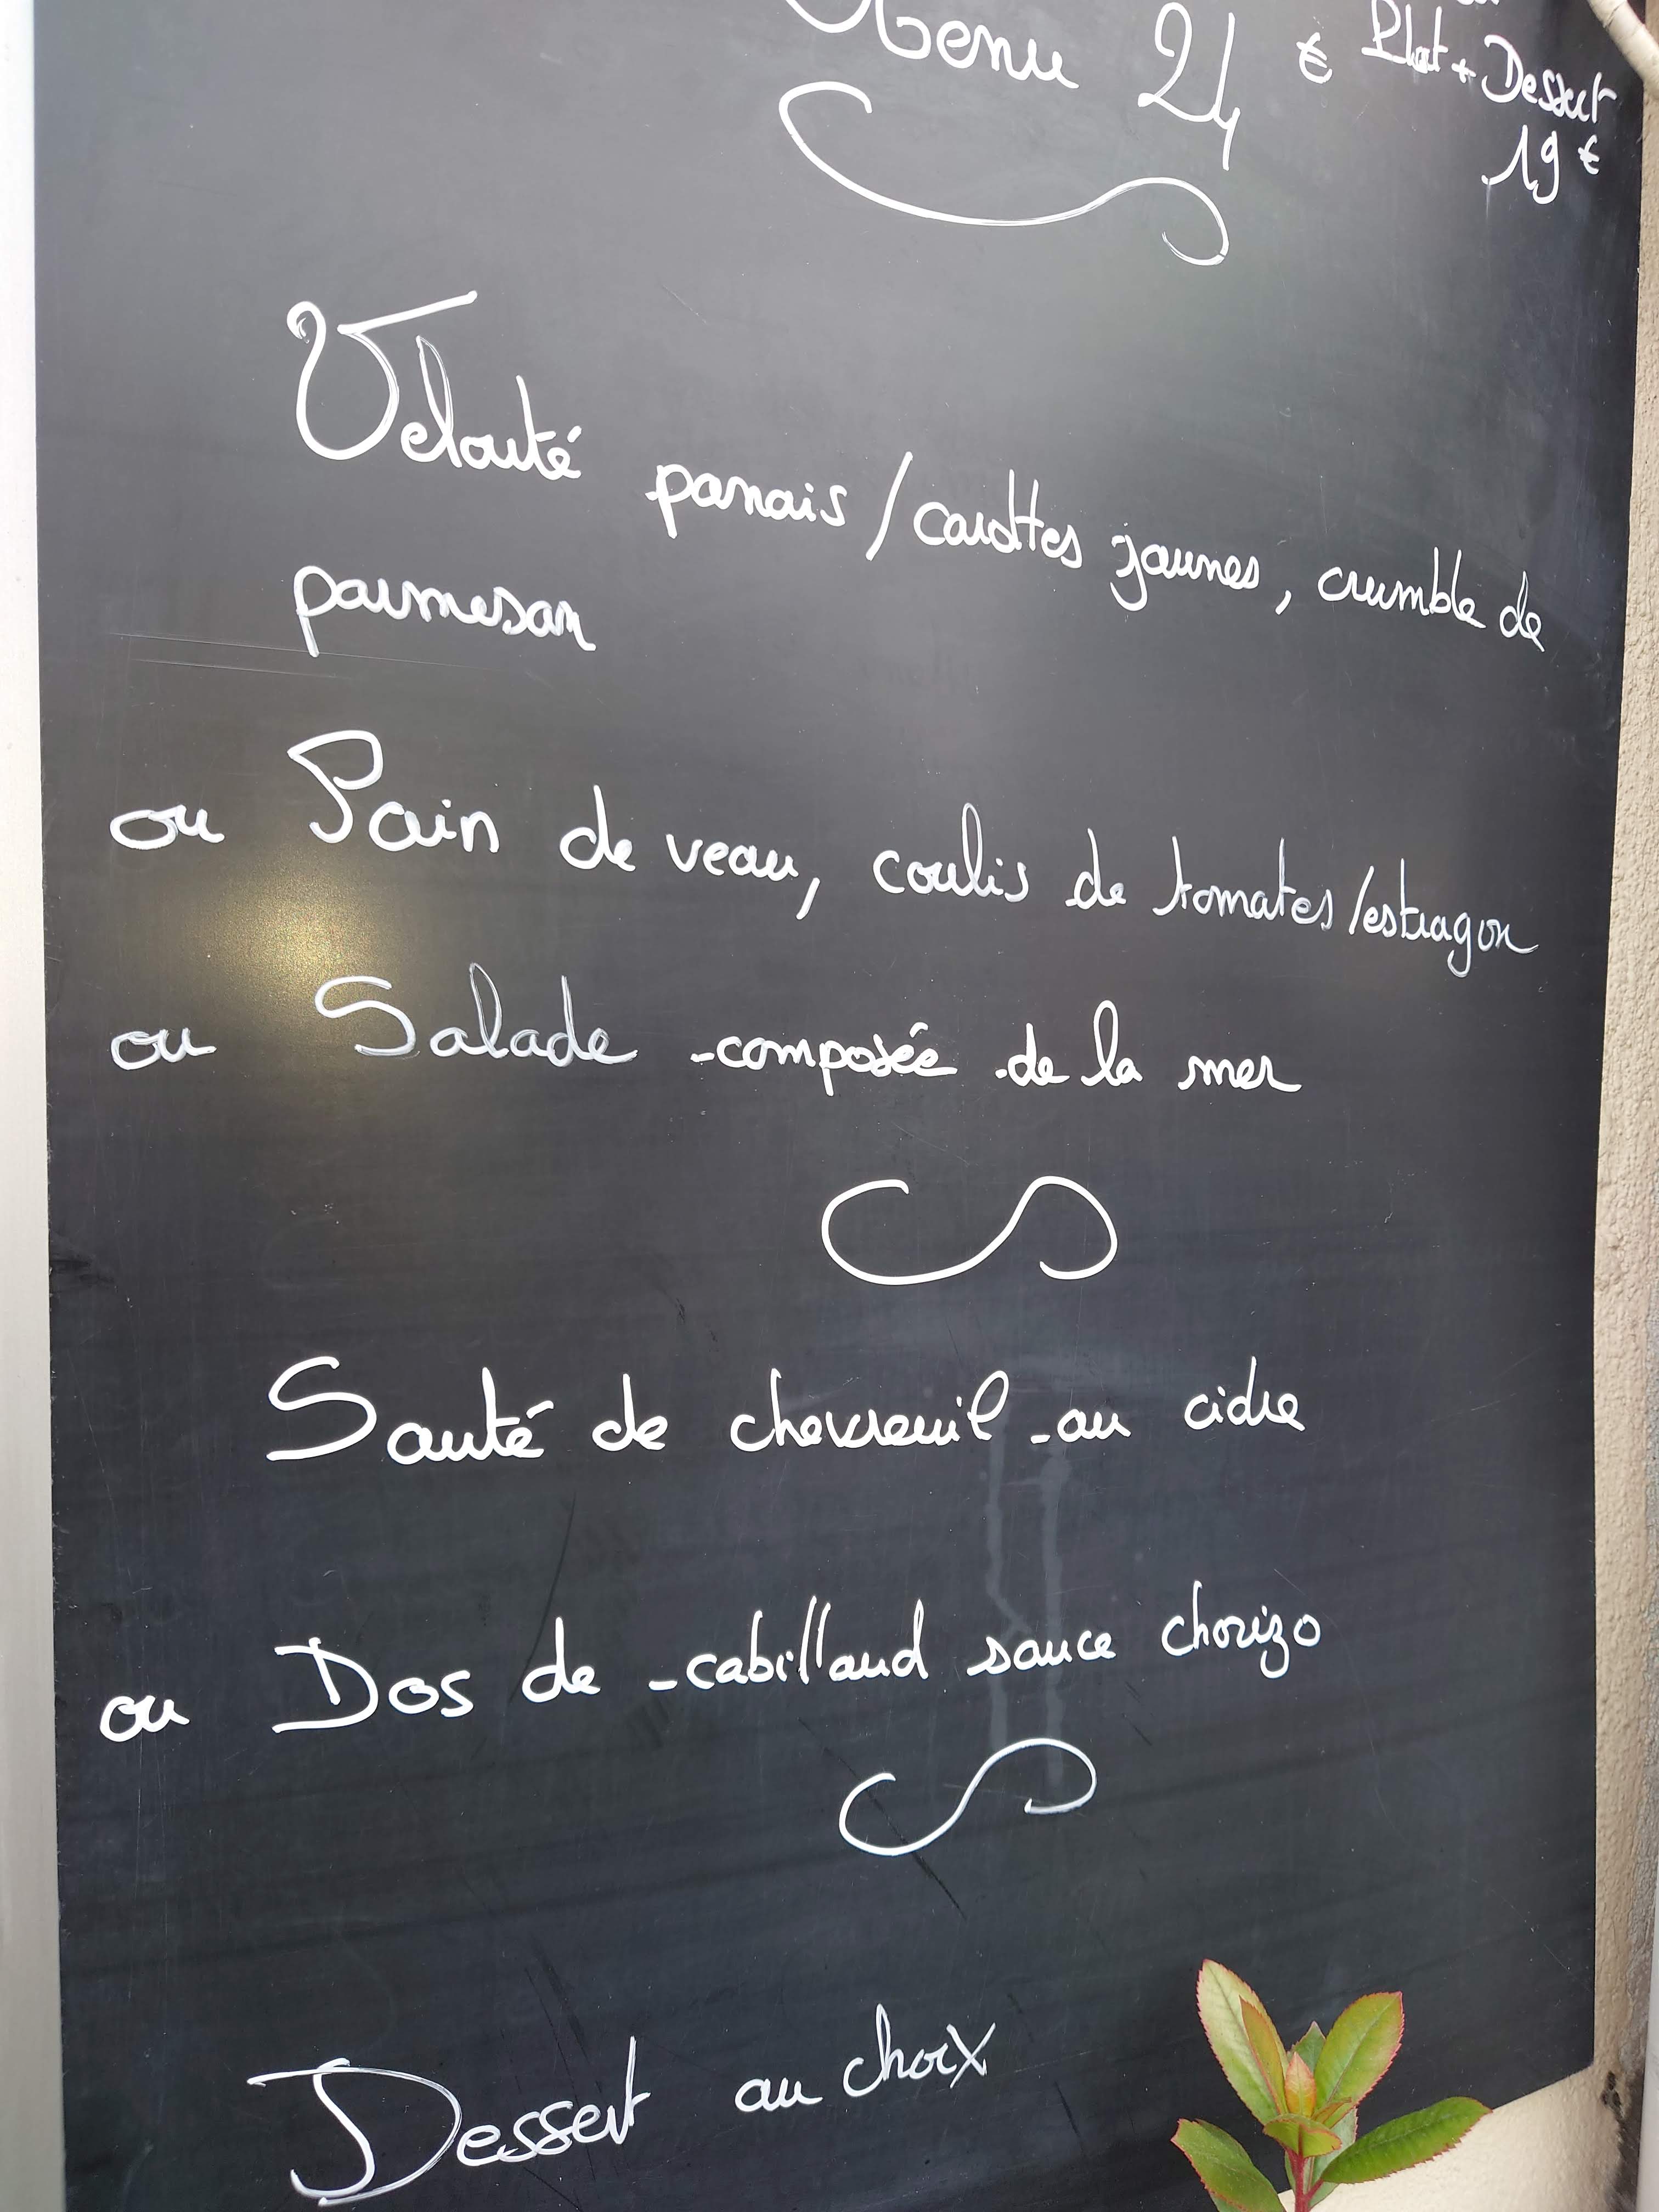 Menu 24 €
Plat + Dessert
19 €
Velouté panais / carottes jaunes, crumble de
parmesan
ou Pain de veau, coulis de tomates / estragon
ou Salade composée de la mer
Sauté de chevreuil au cidre
ou Dos de cabillaud sauce chorizo
Dessert au choix